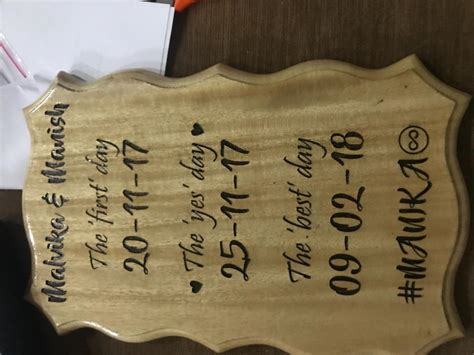 Malvika & Manish
The 'first' day
20-11-17
The 'yes' day
25-11-17
The 'best' day
09-02-18
#MAWKA